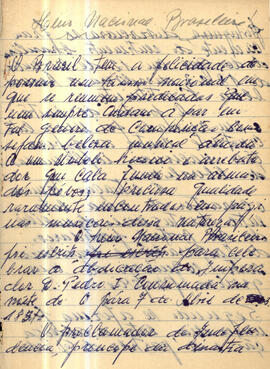 Hino Nacional Brasileiro
O Brasil tem a felicidade de
possuir um hino nacional em
que se reunem predicados que
nem sempre existem a par em
tal genero de composição, bem
sejam: belesa musical aliada
a um
que cala fundo no animo
dos povos. Preciosa qualidade
raramente encontrada em pagi-
nas musicais dessa natureza.
O Hino Nacional Brasileiro
foi escrito para cele-
brar a abdicação do Imperador
D. Pedro I, consumada na
noite de 6 para 7 de Abril de
1831.
O proclamador da Indepen-
dencia, principe da dinastia